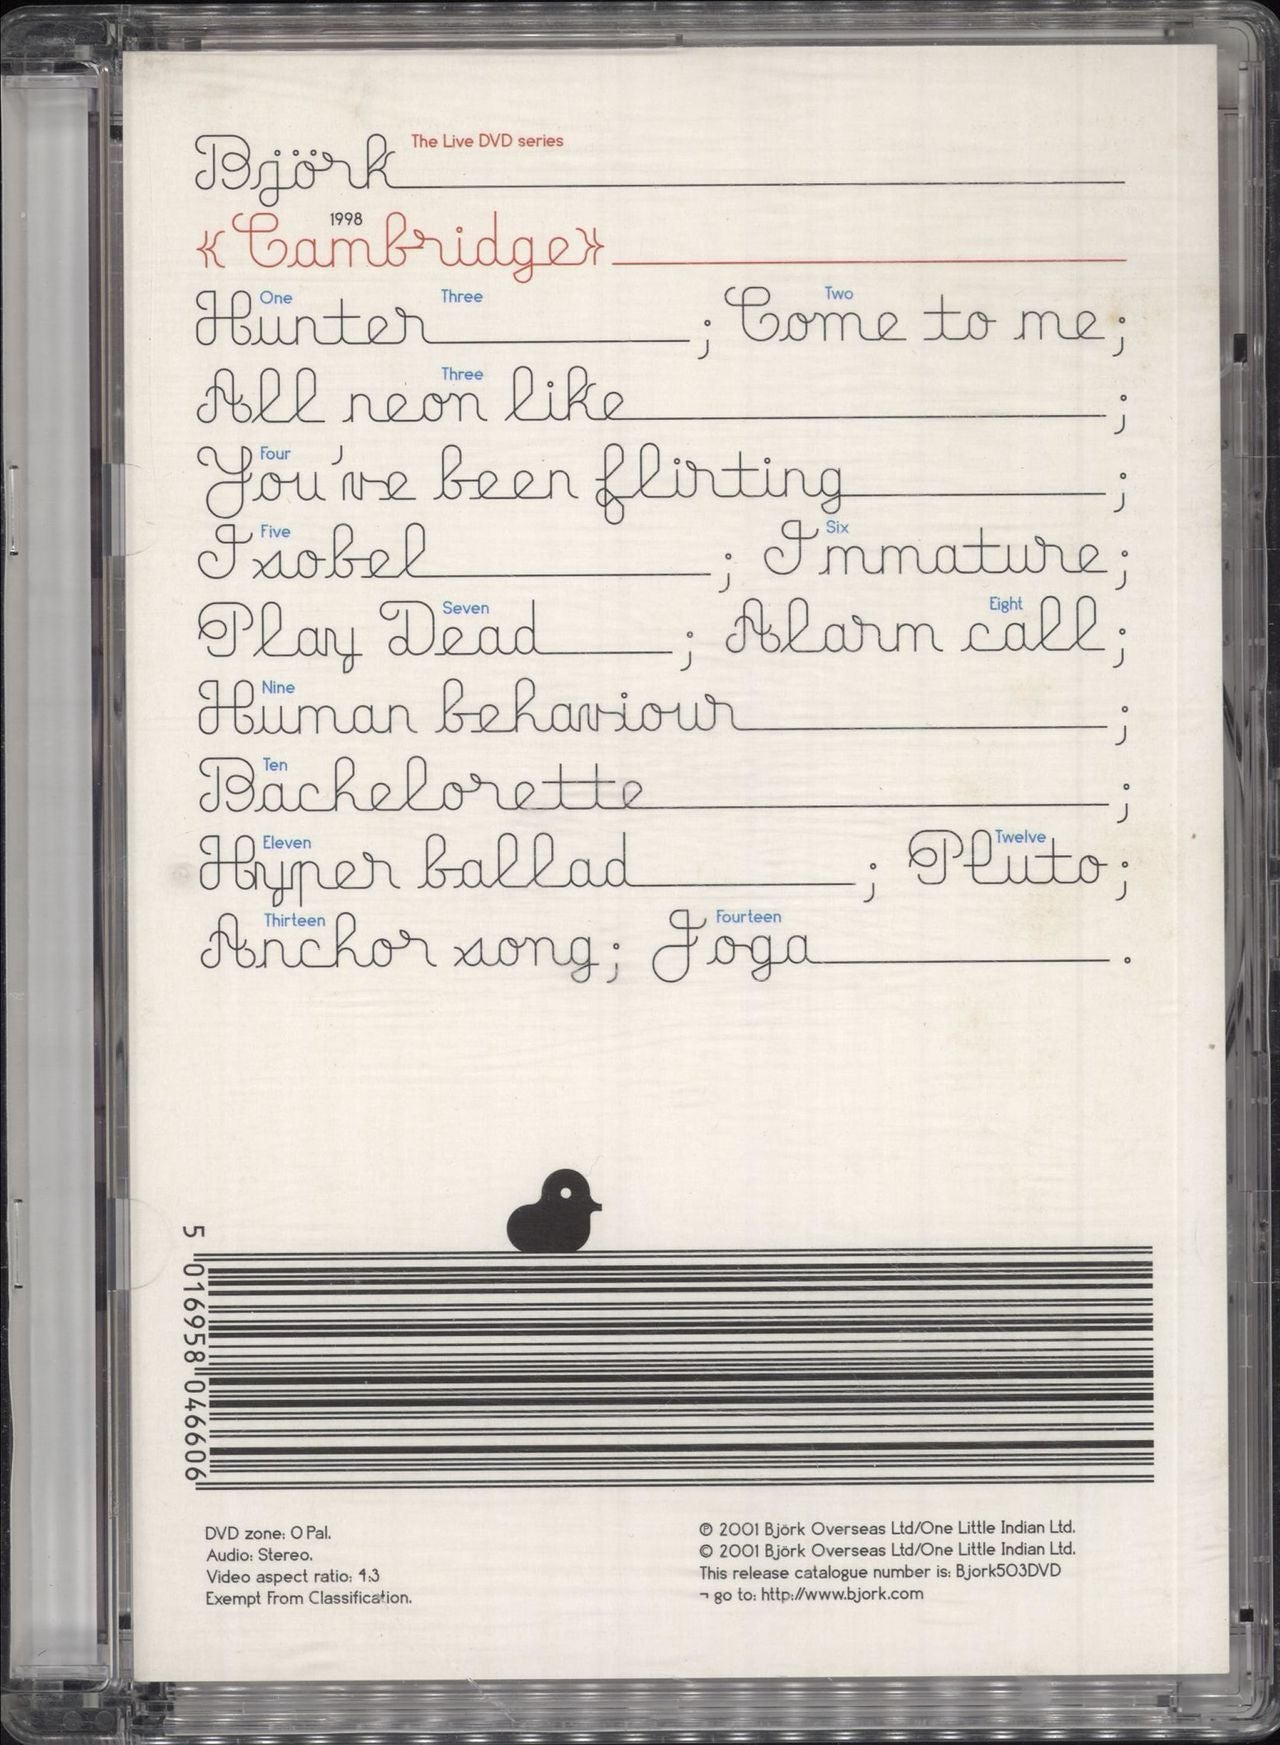 Björk The Live DVD series
«Cambridge» 1998
One Three Two
Hunter ; Come to me;
Three
All neon like ;
Four
You've been flirting ;
Five Six
Isobel ; Immature;
Seven Eight
Play Dead ; Alarm call;
Nine
Human behaviour ;
Ten
Bachelorette ;
Eleven Twelve
Hyper ballad ; Pluto;
Thirteen Fourteen
Anchor song; Joga .
5 016958 046606
DVD zone: 0 Pal.
Audio: Stereo.
Video aspect ratio: 4:3
Exempt From Classification.
℗ 2001 Björk Overseas Ltd/One Little Indian Ltd.
© 2001 Björk Overseas Ltd/One Little Indian Ltd.
This release catalogue number is: Bjork503DVD
¬ go to: http://www.bjork.com